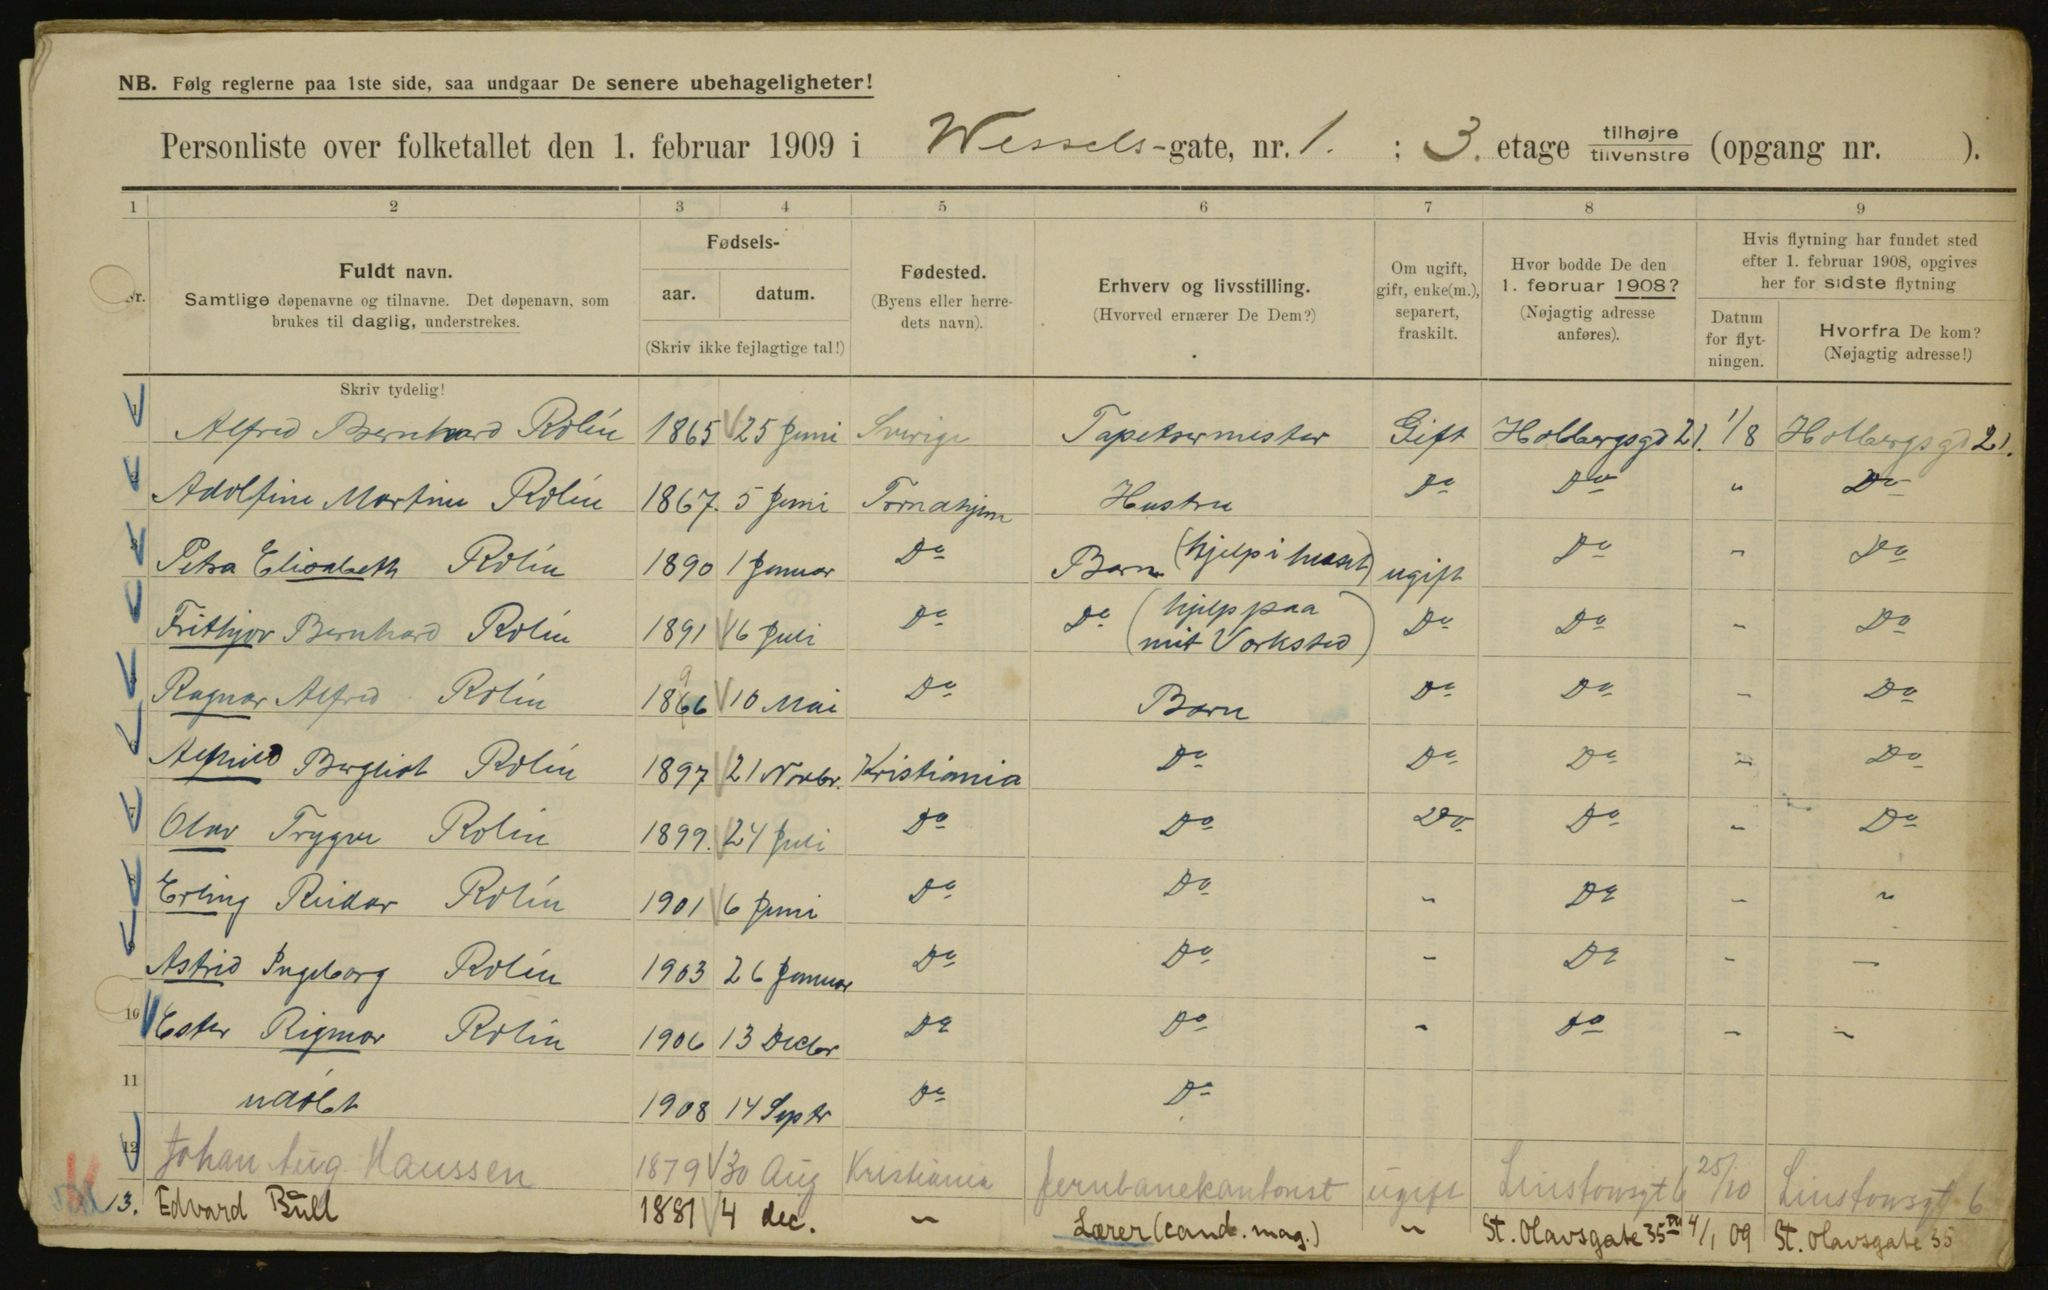 NB. Følg reglerne paa 1ste side, saa undgaar De senere ubehageligheter!
Personliste over folketallet den 1. februar 1909 i Wessels-gate, nr. 1. ; 3. etage tilhøjre tilvenstre (opgang nr. ).
1 2 3 4 5 6 7 8 9
Nr.
Fuldt navn.
Samtlige døpenavne og tilnavne. Det døpenavn, som
brukes til daglig, understrekes.
Skriv tydelig!
Fødsels-
aar. datum.
(Skriv ikke fejlagtige tal!)
Fødested.
(Byens eller herre-
dets navn).
Erhverv og livsstilling.
(Hvorved ernærer De Dem?)
Om ugift,
gift, enke(m.),
separert,
fraskilt.
Hvor bodde De den
1. februar 1908?
(Nøjagtig adresse
anføres).
Hvis flytning har fundet sted
efter 1. februar 1908, opgives
her for sidste flytning
Datum
for flyt-
ningen.
Hvorfra De kom?
(Nøjagtig adresse!)
1 Alfred Bernhard Rolín 1865 25 Juni Sverige Tapetsermester Gift Holbergsgd 21. 1/8 Holbergsgd 21.
2 Adolfine Martine Rolín 1867. 5 Juni Trondhjem Hustru Do Do " Do
3 Petra Elisabeth Rolín 1890 1 Januar Do Barn (hjelp i huset) ugift Do " Do
4 Frithjov Bernhard Rolín 1891 6 Juli Do Do (hjelp paa mit Verksted) Do Do " Do
5 Ragnar Alfred Rolín 1866 9 10 Mai Do Barn Do Do " Do
6 Alfhild Bergliot Rolín 1897 21 Novbr. Kristiania Do Do Do " Do
7 Olav Trygve Rolín 1899. 24 Juli Do Do Do Do " Do
8 Erling Reidar Rolín 1901 6 Juni Do Do " Do " "
9 Astrid Ingeborg Rolín 1903 26 Januar Do Do " Do " "
10 Ester Rigmor Rolín 1906 13 Decbr Do Do " Do " "
11 udöbt 1908 14 Septr Do Do
12 Johan Aug. Haussen 1879 30 Aug Kristiania Jernbanekontorist ugift Linstowsgt 6 25/10 Linstowsgt 6
13. Edvard Bull 1881 4 dec. " Lærer (cand. mag.) " St. Olavsgate 35 IV 4/1 09 St. Olavsgate 35